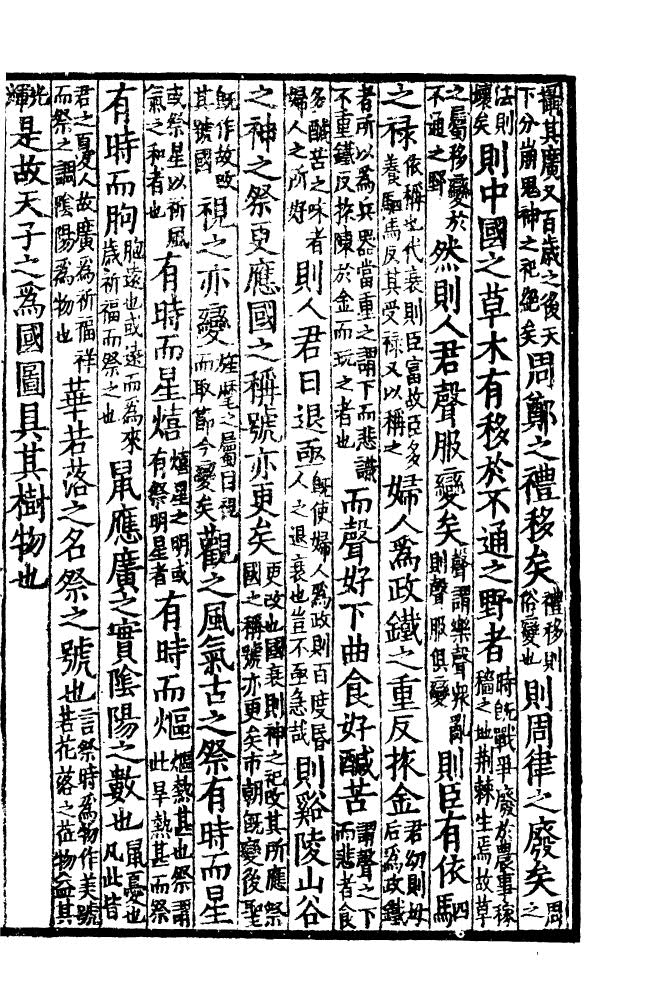 攝其廣又百歲之後天下分崩鬼神之祀絕矣周鄭之禮移矣禮移則俗變也則周律之廢矣周之
法則壞矣則中國之草木有移於不通之野者時旣戰爭廢於農事稼穡之地荆棘生焉故草
之屬移變於不通之野然則人君聲服變矣聲謂樂聲衆亂則聲服俱變則臣有依駟
之祿依稱也代衰則臣富故臣多養駟馬反其受祿又以稱之婦人爲政鐵之重反旅金君幼則母后爲政鐵
者所以爲兵器當重之謂下而悲議不重鐵反旅陳於金而玩之者也而聲好下曲食好鹹苦謂聲之下而悲者食
多鹹苦之味者婦人之所好則人君日退亟旣使婦人爲政則百度昏人之退衰也豈不亟急哉則谿陵山谷
之神之祭更應國之稱號亦更矣更改也國衰則神之祀改其所應祭國之稱號亦更矣市朝旣變後聖
旣作故改其號國視之亦變旌麾之屬目視而取節今變矣觀之風氣古之祭有時而星
或祭星以祈風氣之和者也有時而星熺熺星之明或有祭明星者有時而熰熰熱甚也祭謂此旱熱甚而祭
有時而胊胊遠也或遠而爲來歲祈福而祭之也鼠應廣之實隂陽之數也鼠憂也凡此皆
君之憂人故廣爲祈福祥而祭之調隂陽爲物也華若落之名祭之號也言祭時爲物作美號若花落之莅物益其
光輝是故天子之爲國圖具其樹物也